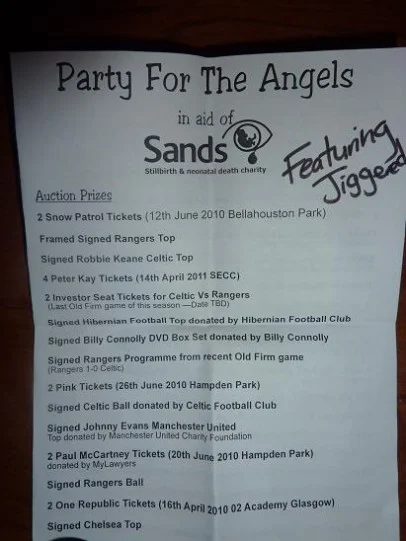 Party For The Angels
in aid of
Sands
Stillbirth & neonatal death charity
Featuring
Jiggered
Auction Prizes
2 Snow Patrol Tickets (12th June 2010 Bellahouston Park)
Framed Signed Rangers Top
Signed Robbie Keane Celtic Top
4 Peter Kay Tickets (14th April 2011 SECC)
2 Investor Seat Tickets for Celtic Vs Rangers
(Last Old Firm game of this season —Date TBD)
Signed Hibernian Football Top donated by Hibernian Football Club
Signed Billy Connolly DVD Box Set donated by Billy Connolly
Signed Rangers Programme from recent Old Firm game
(Rangers 1-0 Celtic)
2 Pink Tickets (26th June 2010 Hampden Park)
Signed Celtic Ball donated by Celtic Football Club
Signed Johnny Evans Manchester United
Top donated by Manchester United Charity Foundation
2 Paul McCartney Tickets (20th June 2010 Hampden Park)
donated by MyLawyers
Signed Rangers Ball
2 One Republic Tickets (16th April 2010 02 Academy Glasgow)
Signed Chelsea Top